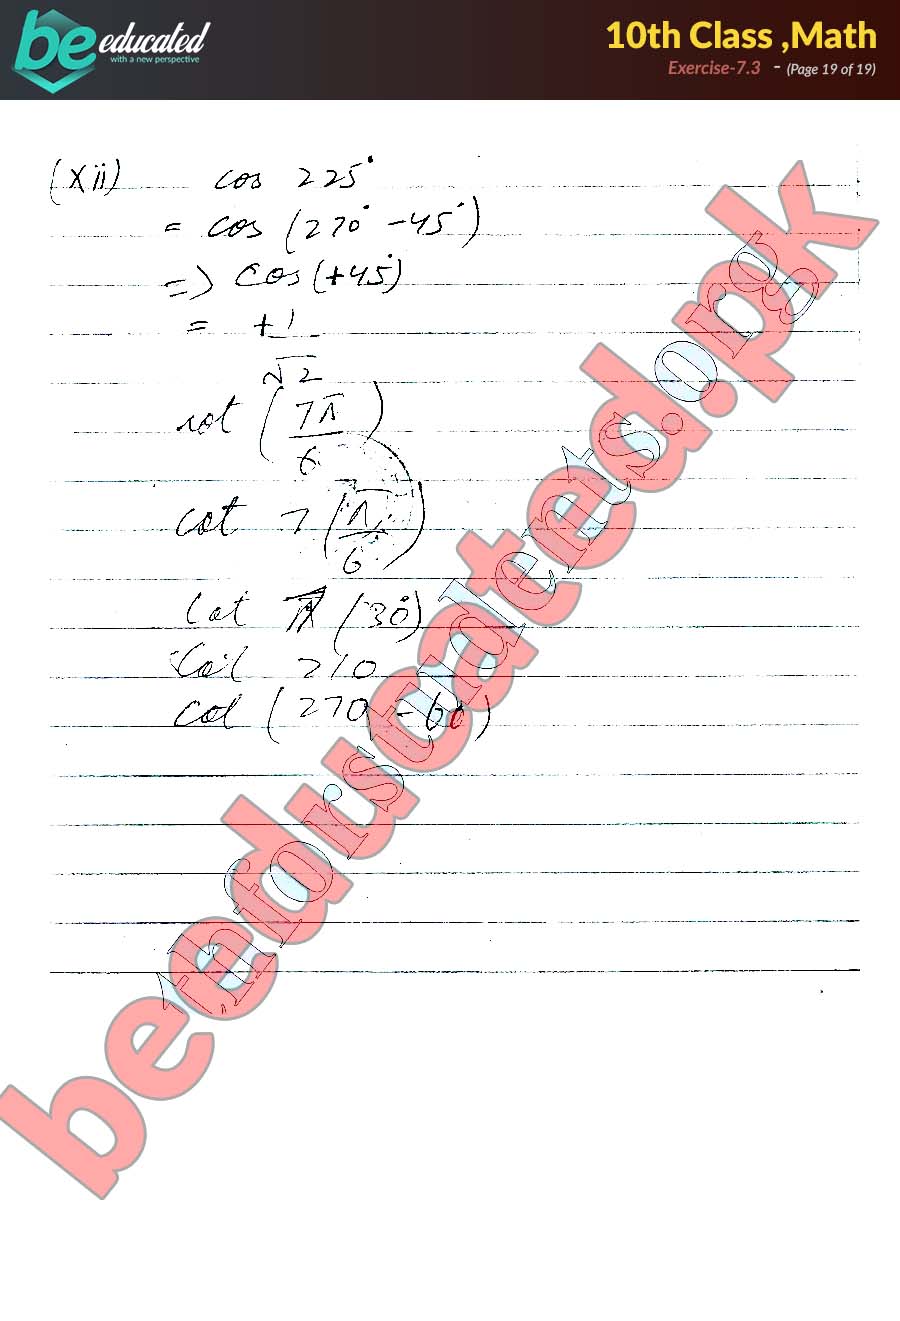 be educated
with a new perspective
10th Class ,Math
Exercise-7.3 - (Page 19 of 19)
(xii) cos 225°
= cos (270° - 45°)
=> cos (+45°)
= +1
√2
cot (7π/6)
cot 7 (π/6)
cot 7 (30°)
cot 210
cot (270 - 60)
beeducated.pk